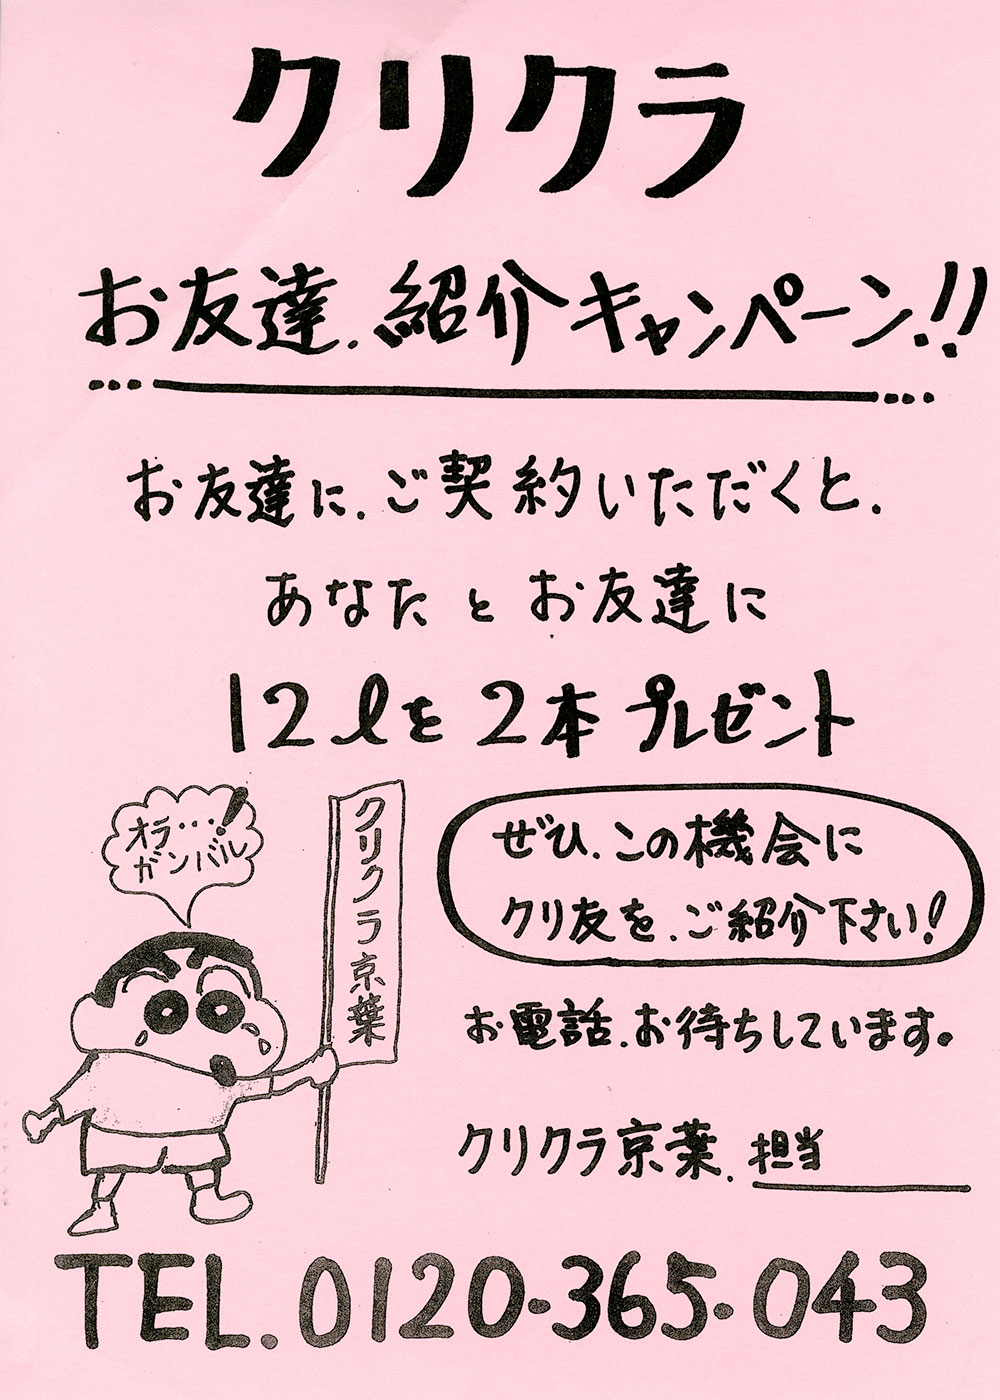 クリクラ
お友達.紹介キャンペーン.!!
お友達に.ご契約いただくと.
あなたとお友達に
12ℓを2本プレゼント
オラ…!
ガンバル
クリクラ京葉
ぜひ.この機会に
クリ友を.ご紹介下さい!
お電話.お待ちしています。
クリクラ京葉.担当
TEL.0120-365-043